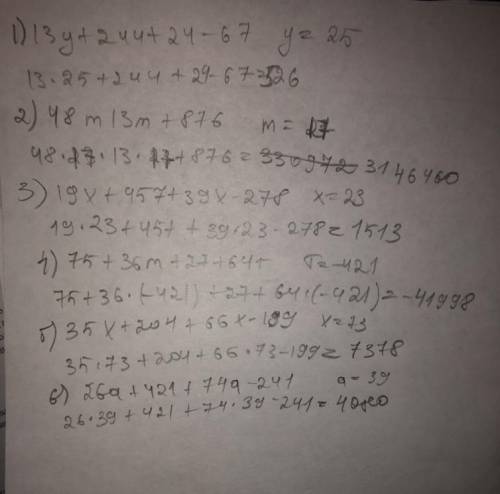 1) 13y + 244 + 24 - 67 y = 25
13 · 25 + 244 + 24 - 67 = 526
2) 48 m 13m + 876 m = 17
48 · 17 · 13 · 17 + 876 = 3146460
3) 19x + 457 + 39x - 278 x = 23
19 · 23 + 457 + 39 · 23 - 278 = 1513
4) 75 + 36m + 27 + 64
75 + 36 · (-421) + 27 + 64 · (-421) = -41998
5) 35x + 204 + 66x - 199 x = 73
35 · 73 + 204 + 66 · 73 - 199 = 7378
6) 26a + 421 + 74a - 241 a = 39
26 · 39 + 421 + 74 · 39 - 241 = 4080